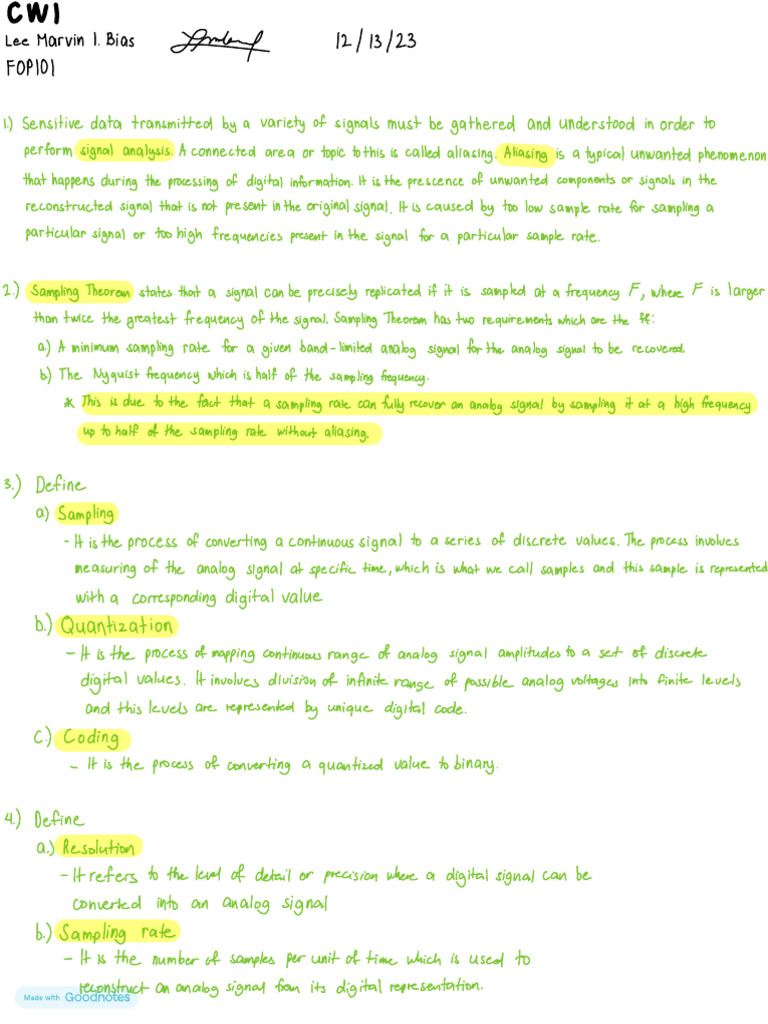 CW1
Lee Marvin I. Bias 12/13/23
FOP101
1.) Sensitive data transmitted by a variety of signals must be gathered and understood in order to
perform signal analysis. A connected area or topic to this is called aliasing. Aliasing is a typical unwanted phenomenon
that happens during the processing of digital information. It is the prescence of unwanted components or signals in the
reconstructed signal that is not present in the original signal. It is caused by too low sample rate for sampling a
particular signal or too high frequencies present in the signal for a particular sample rate.
2.) Sampling Theorem states that a signal can be precisely replicated if it is sampled at a frequency F, where F is larger
than twice the greatest frequency of the signal. Sampling Theorem has two requirements which are the ff:
a.) A minimum sampling rate for a given band-limited analog signal for the analog signal to be recovered.
b) The Nyquist frequency which is half of the sampling frequency.
* This is due to the fact that a sampling rate can fully recover an analog signal by sampling it at a high frequency
up to half of the sampling rate without aliasing.
3.) Define
a) Sampling
- It is the process of converting a continuous signal to a series of discrete values. The process involves
measuring of the analog signal at specific time, which is what we call samples and this sample is represented
with a corresponding digital value
b.) Quantization
- It is the process of mapping continuous range of analog signal amplitudes to a set of discrete
digital values. It involves division of infinite range of possible analog voltages into finite levels
and this levels are represented by unique digital code.
c.) Coding
- It is the process of converting a quantized value to binary.
4.) Define
a.) Resolution
- It refers to the level of detail or precision where a digital signal can be
converted into an analog signal
b.) Sampling rate
- It is the number of samples per unit of time which is used to
reconstruct an analog signal from its digital representation.
Made with Goodnotes